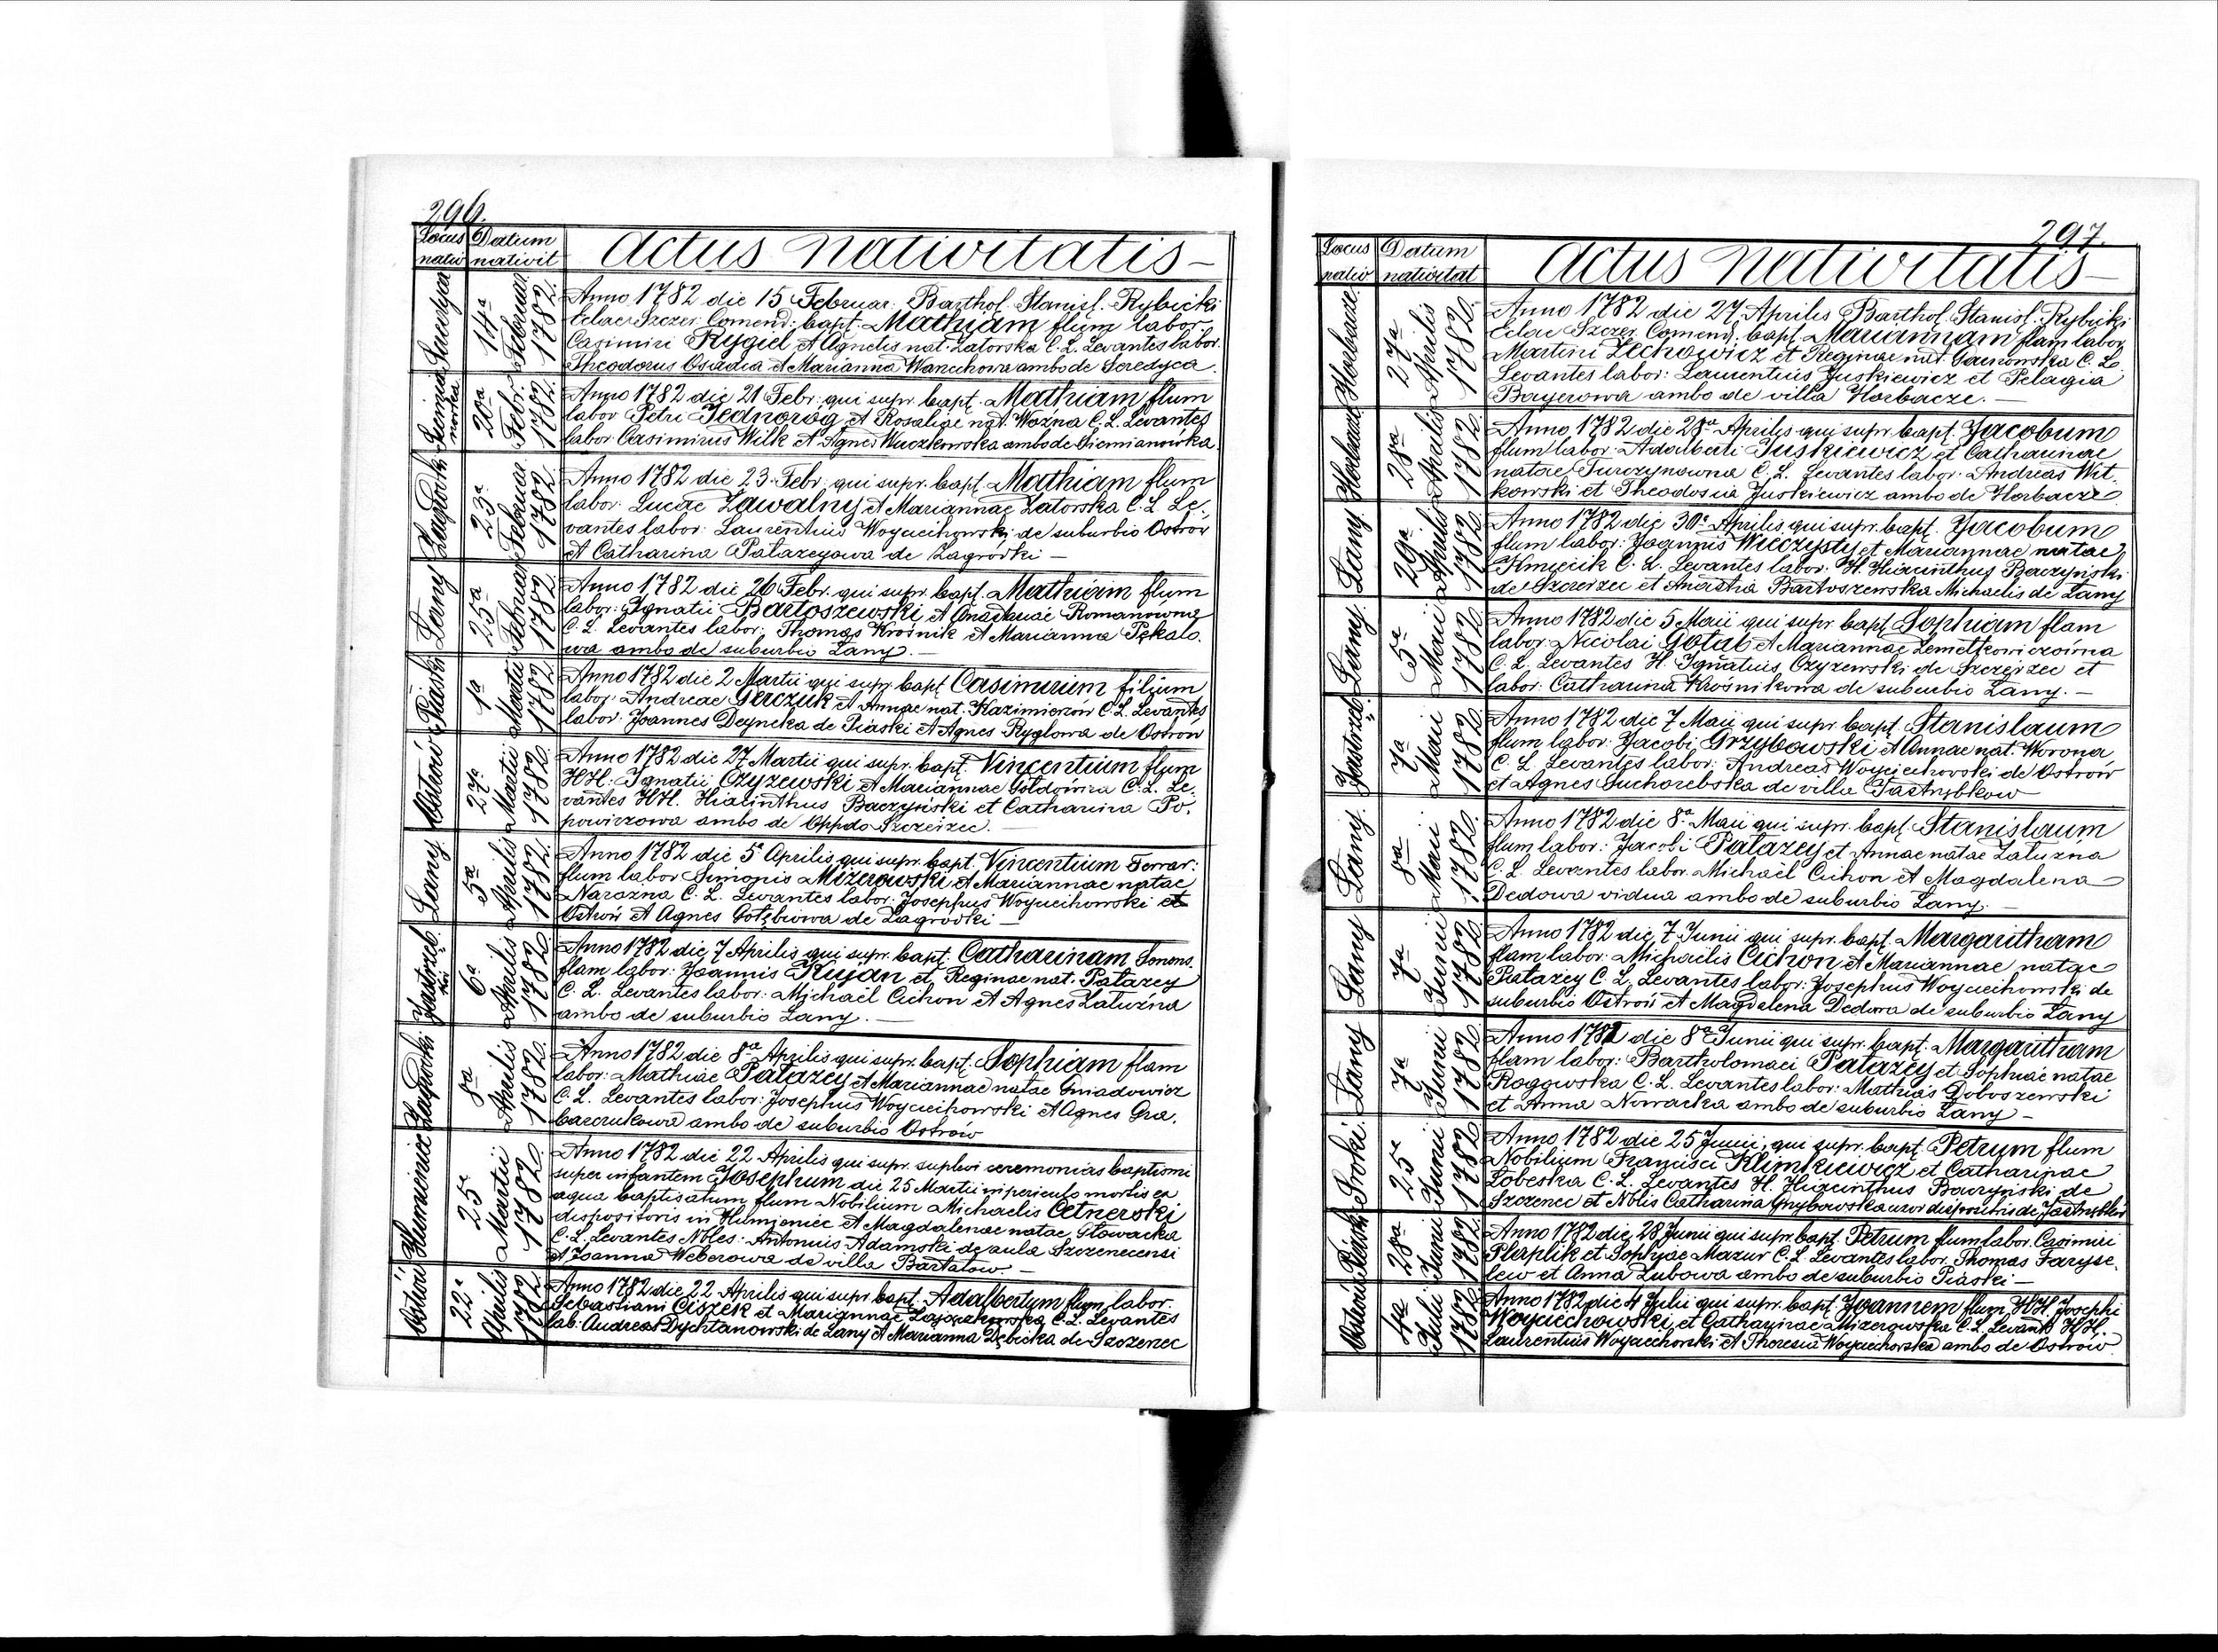 296.
Locus nativ
Datum nativit
Actus Nativitatis
Seredyca
14a Februar. 1782.
Anno 1782 die 15 Februar. Barthol. Stanisl. Rybicki
Eclae Szczer. Comend: bapt. Mathiam flum labor.
Casimiri Rygiel et Agnetis nat. Zatorska C. L. Levantes labor.
Theodorus Osadca et Marianna Wanichowa ambo de Seredyca.
Siemianowka
20a Febr. 1782.
Anno 1782 die 21 Febr. qui supr. bapt. Mathiam flum
labor Petri Jednoróg et Rosaliae nat. Woźna C. L. Levantes
labor Casimirus Wilk et Agnes Wuczkowska ambo de Siemianowka.
Zagrodki
23a Februar. 1782.
Anno 1782 die 23 Febr. qui supr. bapt. Mathiam flum
labor. Lucae Zawalny et Mariannae Zatorska C. L. Le-
vantes labor: Laurentius Woyciechowski de suburbio Ostrów
et Catharina Patazeyowa de Zagródki —
Lany
25a Februar 1782.
Anno 1782 die 26 Febr. qui supr. bapt. Mathiam flum
labor: Ignatii Bartoszewski et Anastasiae Romanowna
C. L. Levantes labor: Thomas Krośnik et Marianna Pękalo-
wa ambo de suburbio Lany. —
Piaski
1a Martii 1782.
Anno 1782 die 2 Martii qui supr. bapt Casimirum filium
labor: Andreae Gerczuk et Annae nat. Kazimierów C. L. Levantes
labor. Joannes Deyneka de Piaski et Agnes Ryglowa de Ostrów
Ostrów
27a Martii 1782.
Anno 1782 die 27 Martii qui supr. bapt. Vincentium flum
HH. Ignatii Czyzewski et Mariannae Goldówna C. L. Le-
vantes HH. Hiacinthus Baczyński et Catharina Po-
powiczowa ambo de Oppdo Szczeizec. —
Lany
5a Aprilis 1782.
Anno 1782 die 5a Aprilis qui supr. bapt. Vincentium Ferrar:
flum labor Simonis Mizerowski et Mariannae natae
Narozna C. L. Levantes labor: Josephus Woyciechowski de
Ostrów et Agnes Gołębiowa de Zagrodki —
6a Aprilis 1782.
Anno 1782 die 7 Aprilis qui supr. bapt. Catharinam Senens.
flam labor: Joannis Kujan et Reginae nat. Patazey
C. L. Levantes labor: Michaël Cichon et Agnes Zatuźna
ambo de suburbio Lany. —
Zagrodki
8a Aprilis 1782.
Anno 1782 die 8a Aprilis qui supr. bapt. Sophiam flam
labor: Mathiae Patazey et Mariannae natae Gniadowicz
C. L. Levantes labor: Josephus Woyciechowski et Agnes Gra-
barczukowa ambo de suburbio Ostrów
Humieniec
25a Martii 1782.
Anno 1782 die 22 Aprilis qui supr. suplevi ceremonias baptismi
super infantem Josephum die 25 Martii in periculo mortis ex
aqua baptisatum flum Nobilium Michaelis Cetnerski
dispositoris in Humieniec et Magdalenae natae Głowacka
C. L. Levantes Nbles: Antonius Adamski de aula Szczenecensi
et Joanna Weberowa de villa Bartatow. —
Ostrów
22a Aprilis 1782.
Anno 1782 die 22 Aprilis qui supr. bapt. Adalbertum flum labor.
Sebastiani Ciszek et Mariannae C. L. Levantes
lab: Andreas Dychtanowski de Lany et Marianna Dębicka de Szczenec
297.
Locus nativ
Datum nativitat
Actus Nativitatis —
Horbacze
27a Aprilis 1782.
Anno 1782 die 27 Aprilis Barthol. Stanisl. Rybicki
Eclae Szczer. Comend. bapt. Mariannam flam labor
Martini Zechowicz et Reginae nat. C. L.
Levantes labor: Laurentius Juskiewicz et Pelagia
Bayerowa ambo de villa Horbacze. —
Horbacze
28a Aprilis 1782.
Anno 1782 die 28a Aprilis qui supr. bapt. Jacobum
flum labor: Adalberti Juskiewicz et Catharinae
natae Turczynowna C. L. Levantes labor. Andreas Wit-
kowski et Theodosia Juskiewicz ambo de Horbacze
Lany
29a Aprilis 1782.
Anno 1782 die 30a Aprilis qui supr. bapt. Jacobum
flum labor: Joannis Wieczysty et Mariannae natae
Kmiecik C. L. Levantes labor. H. Hiacinthus Baczyński
de Szczeizec et Anastasia Bartoszewska Michaelis de Lany
Lany
5a Maii 1782.
Anno 1782 die 5 Maii qui supr. bapt. Sophiam flam
labor. Nicolai Gołab et Mariannae
C. L. Levantes H. Ignatius Czyzewski de Szczeizec et
labor: Catharina Krośnikowa de suburbio Lany. —
7a Maii 1782.
Anno 1782 die 7 Maii qui supr. bapt. Stanislaum
flum labor: Jacobi Grzybowski et Annae nat. Worona
C. L. Levantes labor: Andreas Woyciechowski de Ostrów
et Agnes Sucharebska de villa Jastrzębkow
Lany
8a Maii 1782.
Anno 1782 die 8a Maii qui supr. bapt. Stanislaum
flum labor: Jacobi Patazey et Annae natae Zatuzna
C. L. Levantes labor. Michaël Cichon et Magdalena
Dedowa vidua ambo de suburbio Lany. —
Lany
7a Junii 1782.
Anno 1782 die 7 Junii qui supr. bapt. Margaritham
flam labor: Michaelis Cichon et Mariannae natae
Patazey C. L. Levantes labor: Josephus Woyciechowski de
suburbio Ostrów et Magdalena Dedowa de suburbio Lany
Lany
7a Junii 1782.
Anno 1782 die 8a Junii qui supr. bapt. Margaritham
flam labor: Bartholomaei Patazey et Sophiae natae
Rogowska C. L. Levantes labor: Mathias Doboszewski
et Anna Nowacka ambo de suburbio Lany —
Sroki
25a Junii 1782.
Anno 1782 die 25 Junii qui supr. bapt. Petrum flum
Nobilium Francisci Klimkiewicz et Catharinae
Łobeska C. L. Levantes H. Hiacinthus Baczyński de
Szczenec et Noblis Catharina Grzybowska uxor dispositoris de
Piaski
28a Junii 1782.
Anno 1782 die 28 Junii qui supr. bapt. Petrum flum labor. Casimiri
Plaplik et Sophiae Mazur C. L. Levantes labor. Thomas Faryse-
lew et Anna Zubowa ambo de suburbio Piaski —
Ostrów
4a Julii 1782.
Anno 1782 die 4 Julii qui supr. bapt. Joannem flum HH. Josephi
Woyciechowski et Catharinae Mizerowska C. L. Levants HH.
Laurentius Woyciechowski et Theresia Woyciechowska ambo de Ostrów